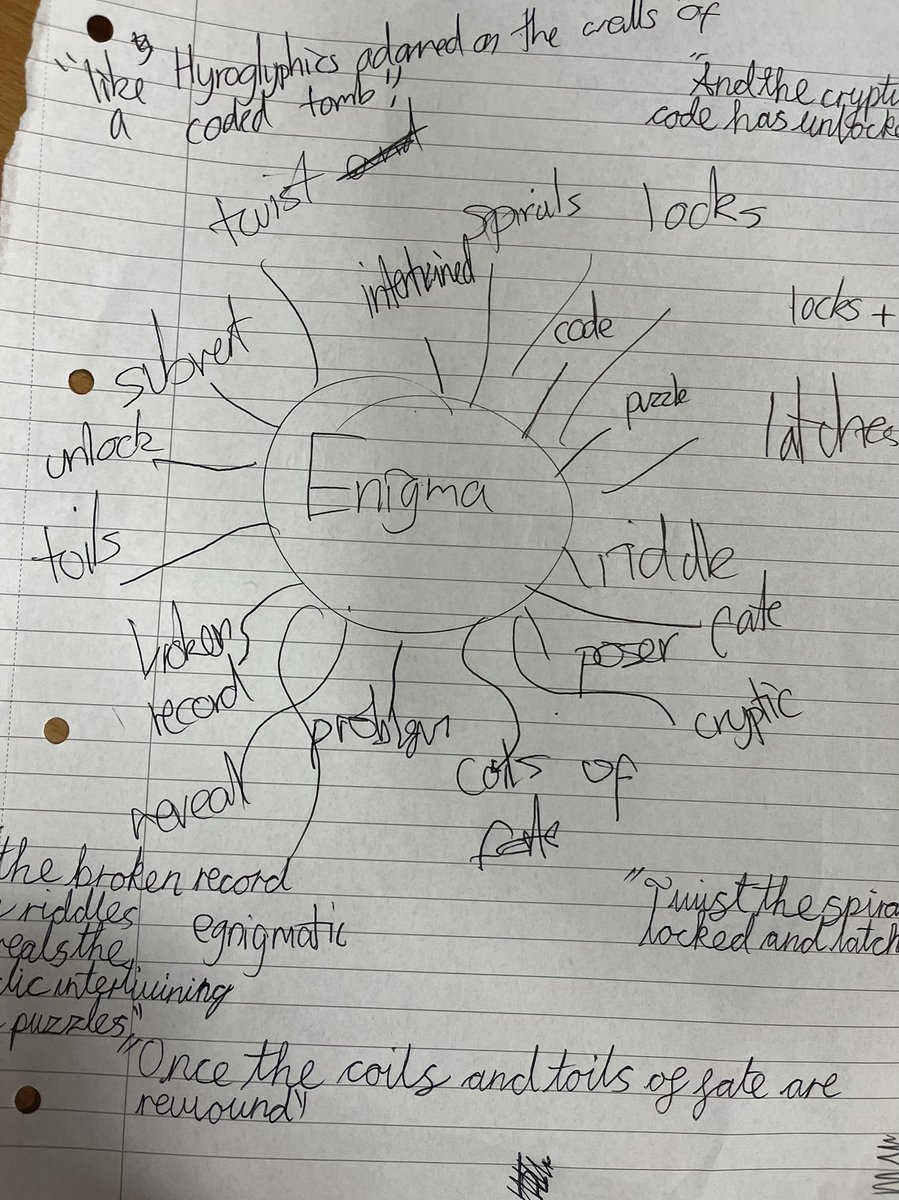 "like Hyroglyphics adorned on the walls of
a coded tomb",
"And the crypti
code has unlocke
twist and
spirals
locks
intertwined
code
locks +
subvert
puzzle
latches
unlock
Enigma
toils
riddle
fate
broken
record
poser
cryptic
problem
reveal
coils of
fate
the broken record
riddles
egnigmatic
eals the
intertwining
puzzles,"
"Twist the spira
locked and latch
"Once the coils and toils of fate are
rewound"